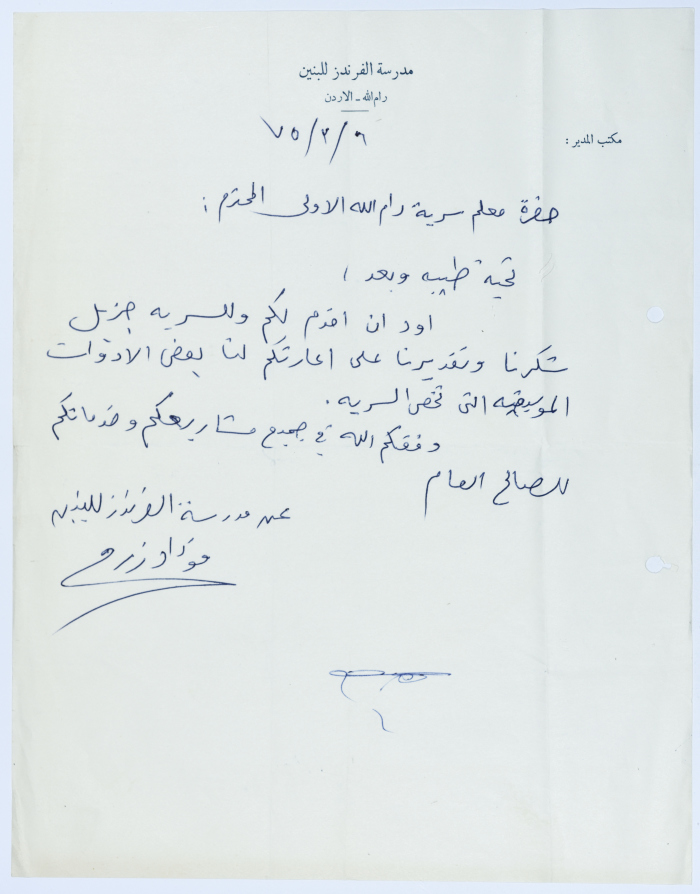 مدرسة الفرندز للبنين
رام الله - الاردن
مكتب المدير :
٧٥/٢/٦
حضرة معلم سرية رام الله الاولى المحترم :
تحية طيبه وبعد ،
اود ان اقدم لكم وللسريه جزيل
شكرنا وتقديرنا على اعارتكم لنا بعض الادوات
الموسيقيه التى تخص السريه .
وفقكم الله في جميع مشاريعكم وخدماتكم
للصالح العام
عن مدرسة الفرندز للبنين
فؤاد